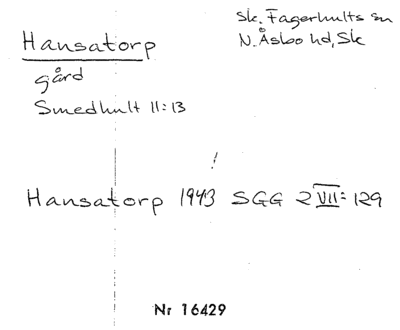 Hansatorp
Sk. Fagerhults sn
N. Åsbo hd, Sk
gård
Smedhult 11:13
Hansatorp 1943 SGG 2 VII: 129
Nr 16429